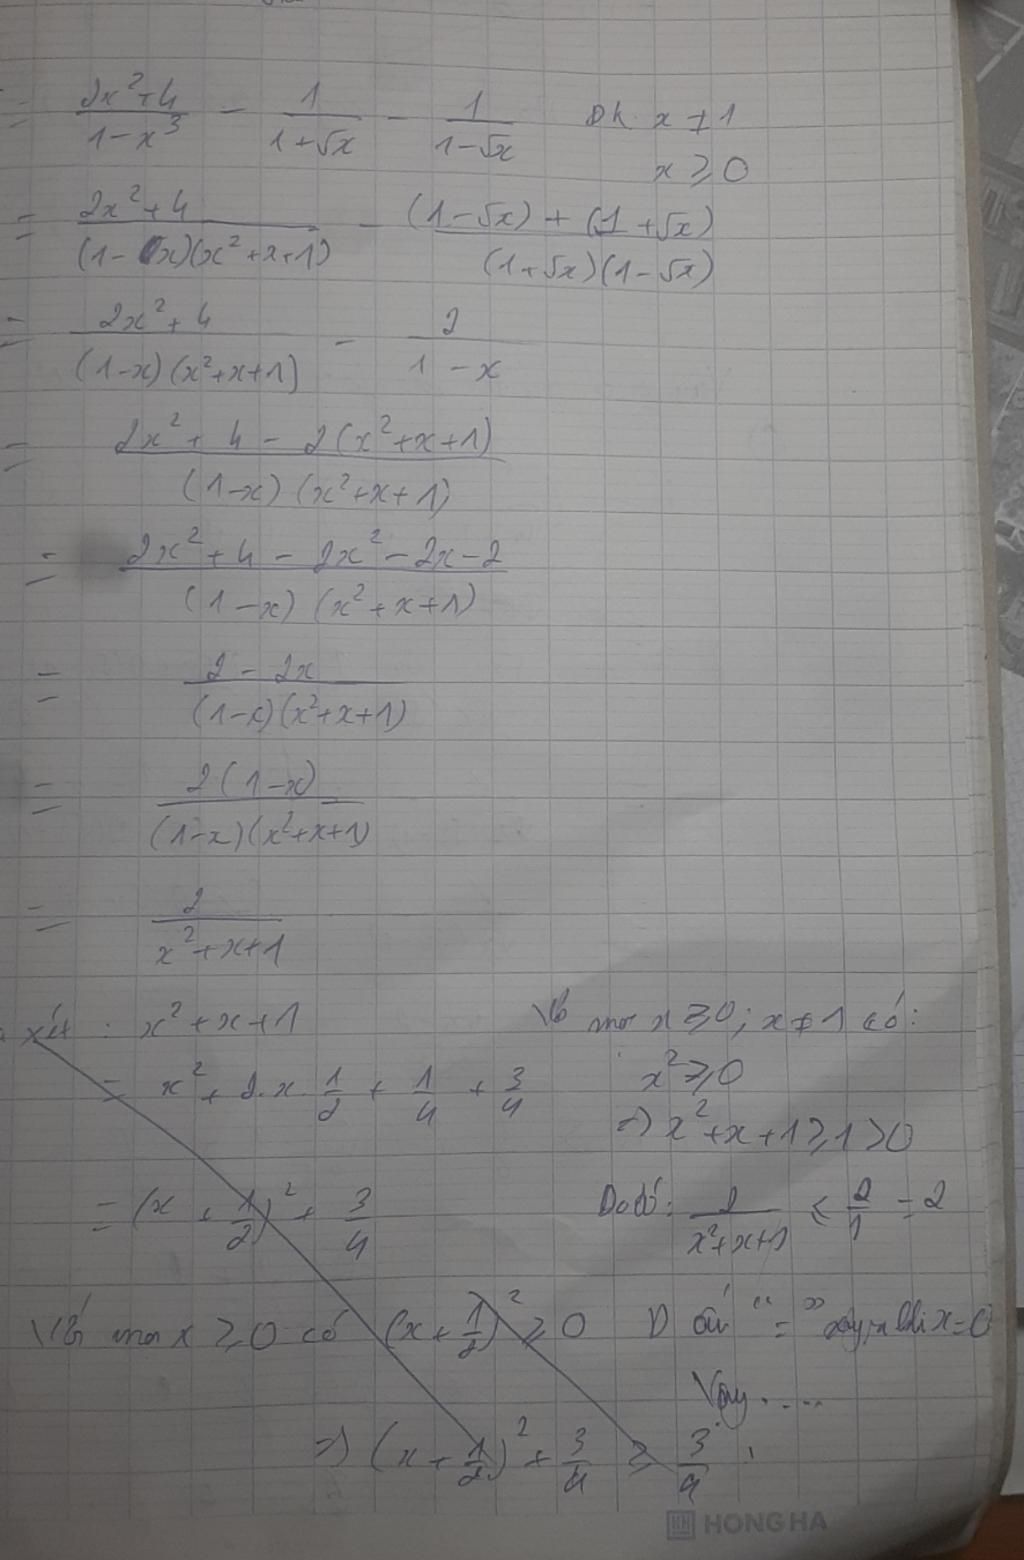 = \frac{2x^2+4}{1-x^3} - \frac{1}{1+\sqrt{x}} - \frac{1}{1-\sqrt{x}} ĐK: x ≠ 1
x ≥ 0
= \frac{2x^2+4}{(1-x)(x^2+x+1)} - \frac{(1-\sqrt{x})+(1+\sqrt{x})}{(1+\sqrt{x})(1-\sqrt{x})}
= \frac{2x^2+4}{(1-x)(x^2+x+1)} - \frac{2}{1-x}
= \frac{2x^2+4-2(x^2+x+1)}{(1-x)(x^2+x+1)}
= \frac{2x^2+4-2x^2-2x-2}{(1-x)(x^2+x+1)}
= \frac{2-2x}{(1-x)(x^2+x+1)}
= \frac{2(1-x)}{(1-x)(x^2+x+1)}
= \frac{2}{x^2+x+1}
xét: x^2+x+1
= x^2+2.x.\frac{1}{2}+\frac{1}{4}+\frac{3}{4}
= (x+\frac{1}{2})^2+\frac{3}{4}
Với mọi x ≥ 0 có (x+\frac{1}{2})^2 ≥ 0
=> (x+\frac{1}{2})^2+\frac{3}{4} ≥ \frac{3}{4}
Với mọi x ≥ 0; x ≠ 1 có:
x^2 ≥ 0
=> x^2+x+1 ≥ 1 > 0
Do đó: \frac{2}{x^2+x+1} ≤ \frac{2}{1} = 2
Dấu "=" xảy ra khi x=0
Vậy....
HONG HA